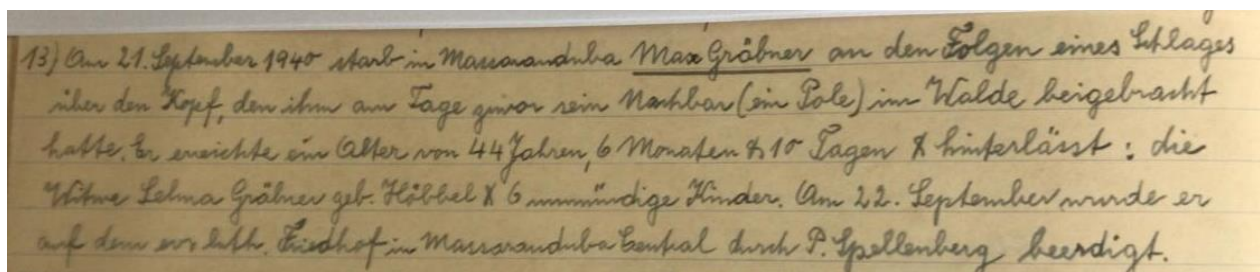 13) Am 21. September 1940 starb in Massaranduba Max Gräbner an den Folgen eines Schlages
über den Kopf, den ihm am Tage zuvor sein Nachbar (ein Pole) im Walde beigebracht
hatte. Er erreichte ein Alter von 44 Jahren, 6 Monaten & 10 Tagen & hinterlässt: die
Witwe Selma Gräbner geb. Höbbel & 6 unmündige Kinder. Am 22. September wurde er
auf dem ev. luth. Friedhof in Massaranduba Central durch P. Spellenberg beerdigt.